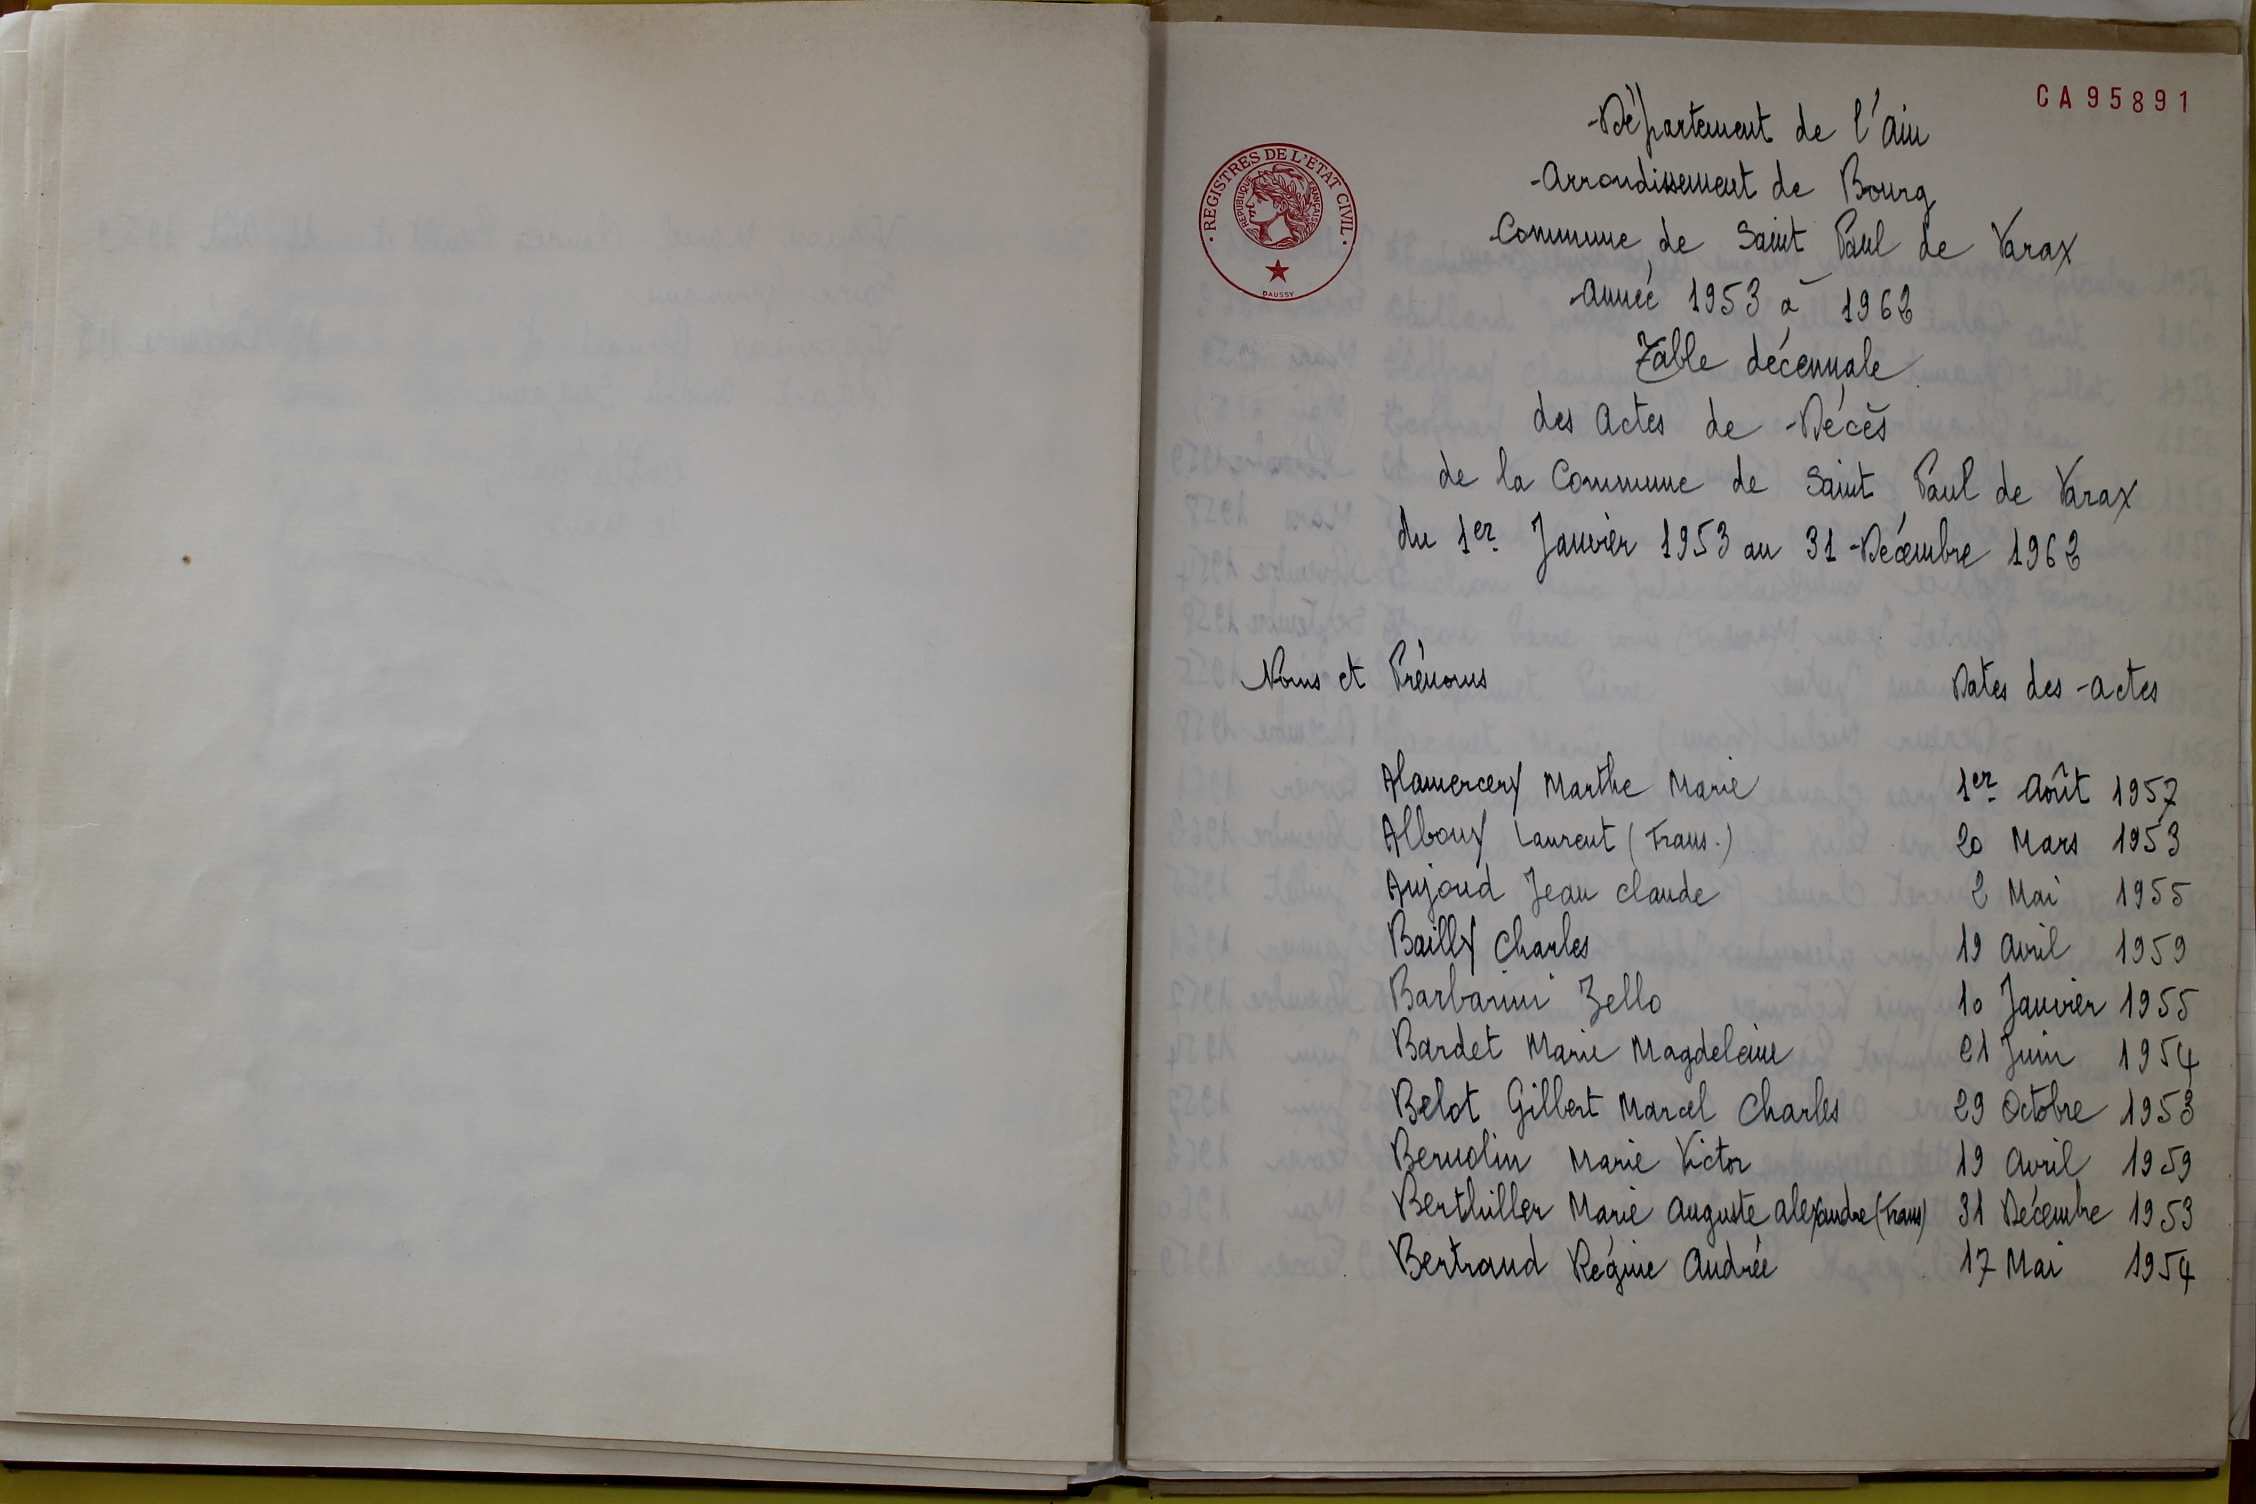 CA95891
REGISTRES DE L'ETAT CIVIL
REPUBLIQUE FRANÇAISE
DAUSSY
Département de l'Ain
Arrondissement de Bourg
Commune de Saint Paul de Varax
Année 1953 à 1962
Table décennale
des Actes de Décès
de la Commune de Saint Paul de Varax
du 1er Janvier 1953 au 31 Décembre 1962
Noms et Prénoms Dates des actes
Alamercery Marthe Marie 1er Août 1957
Albouy Laurent (Trans.) 20 Mars 1953
Aujoud Jean Claude 2 Mai 1955
Bailly Charles 19 Avril 1959
Barbarini Zello 10 Janvier 1955
Bardet Marie Magdeleine 21 Juin 1954
Belot Gilbert Marcel Charles 29 Octobre 1953
Bernolin Marie Victor 19 Avril 1959
Berthiller Marie Auguste Alexandre (Trans) 31 Décembre 1953
Bertraud Régine Andrée 17 Mai 1954